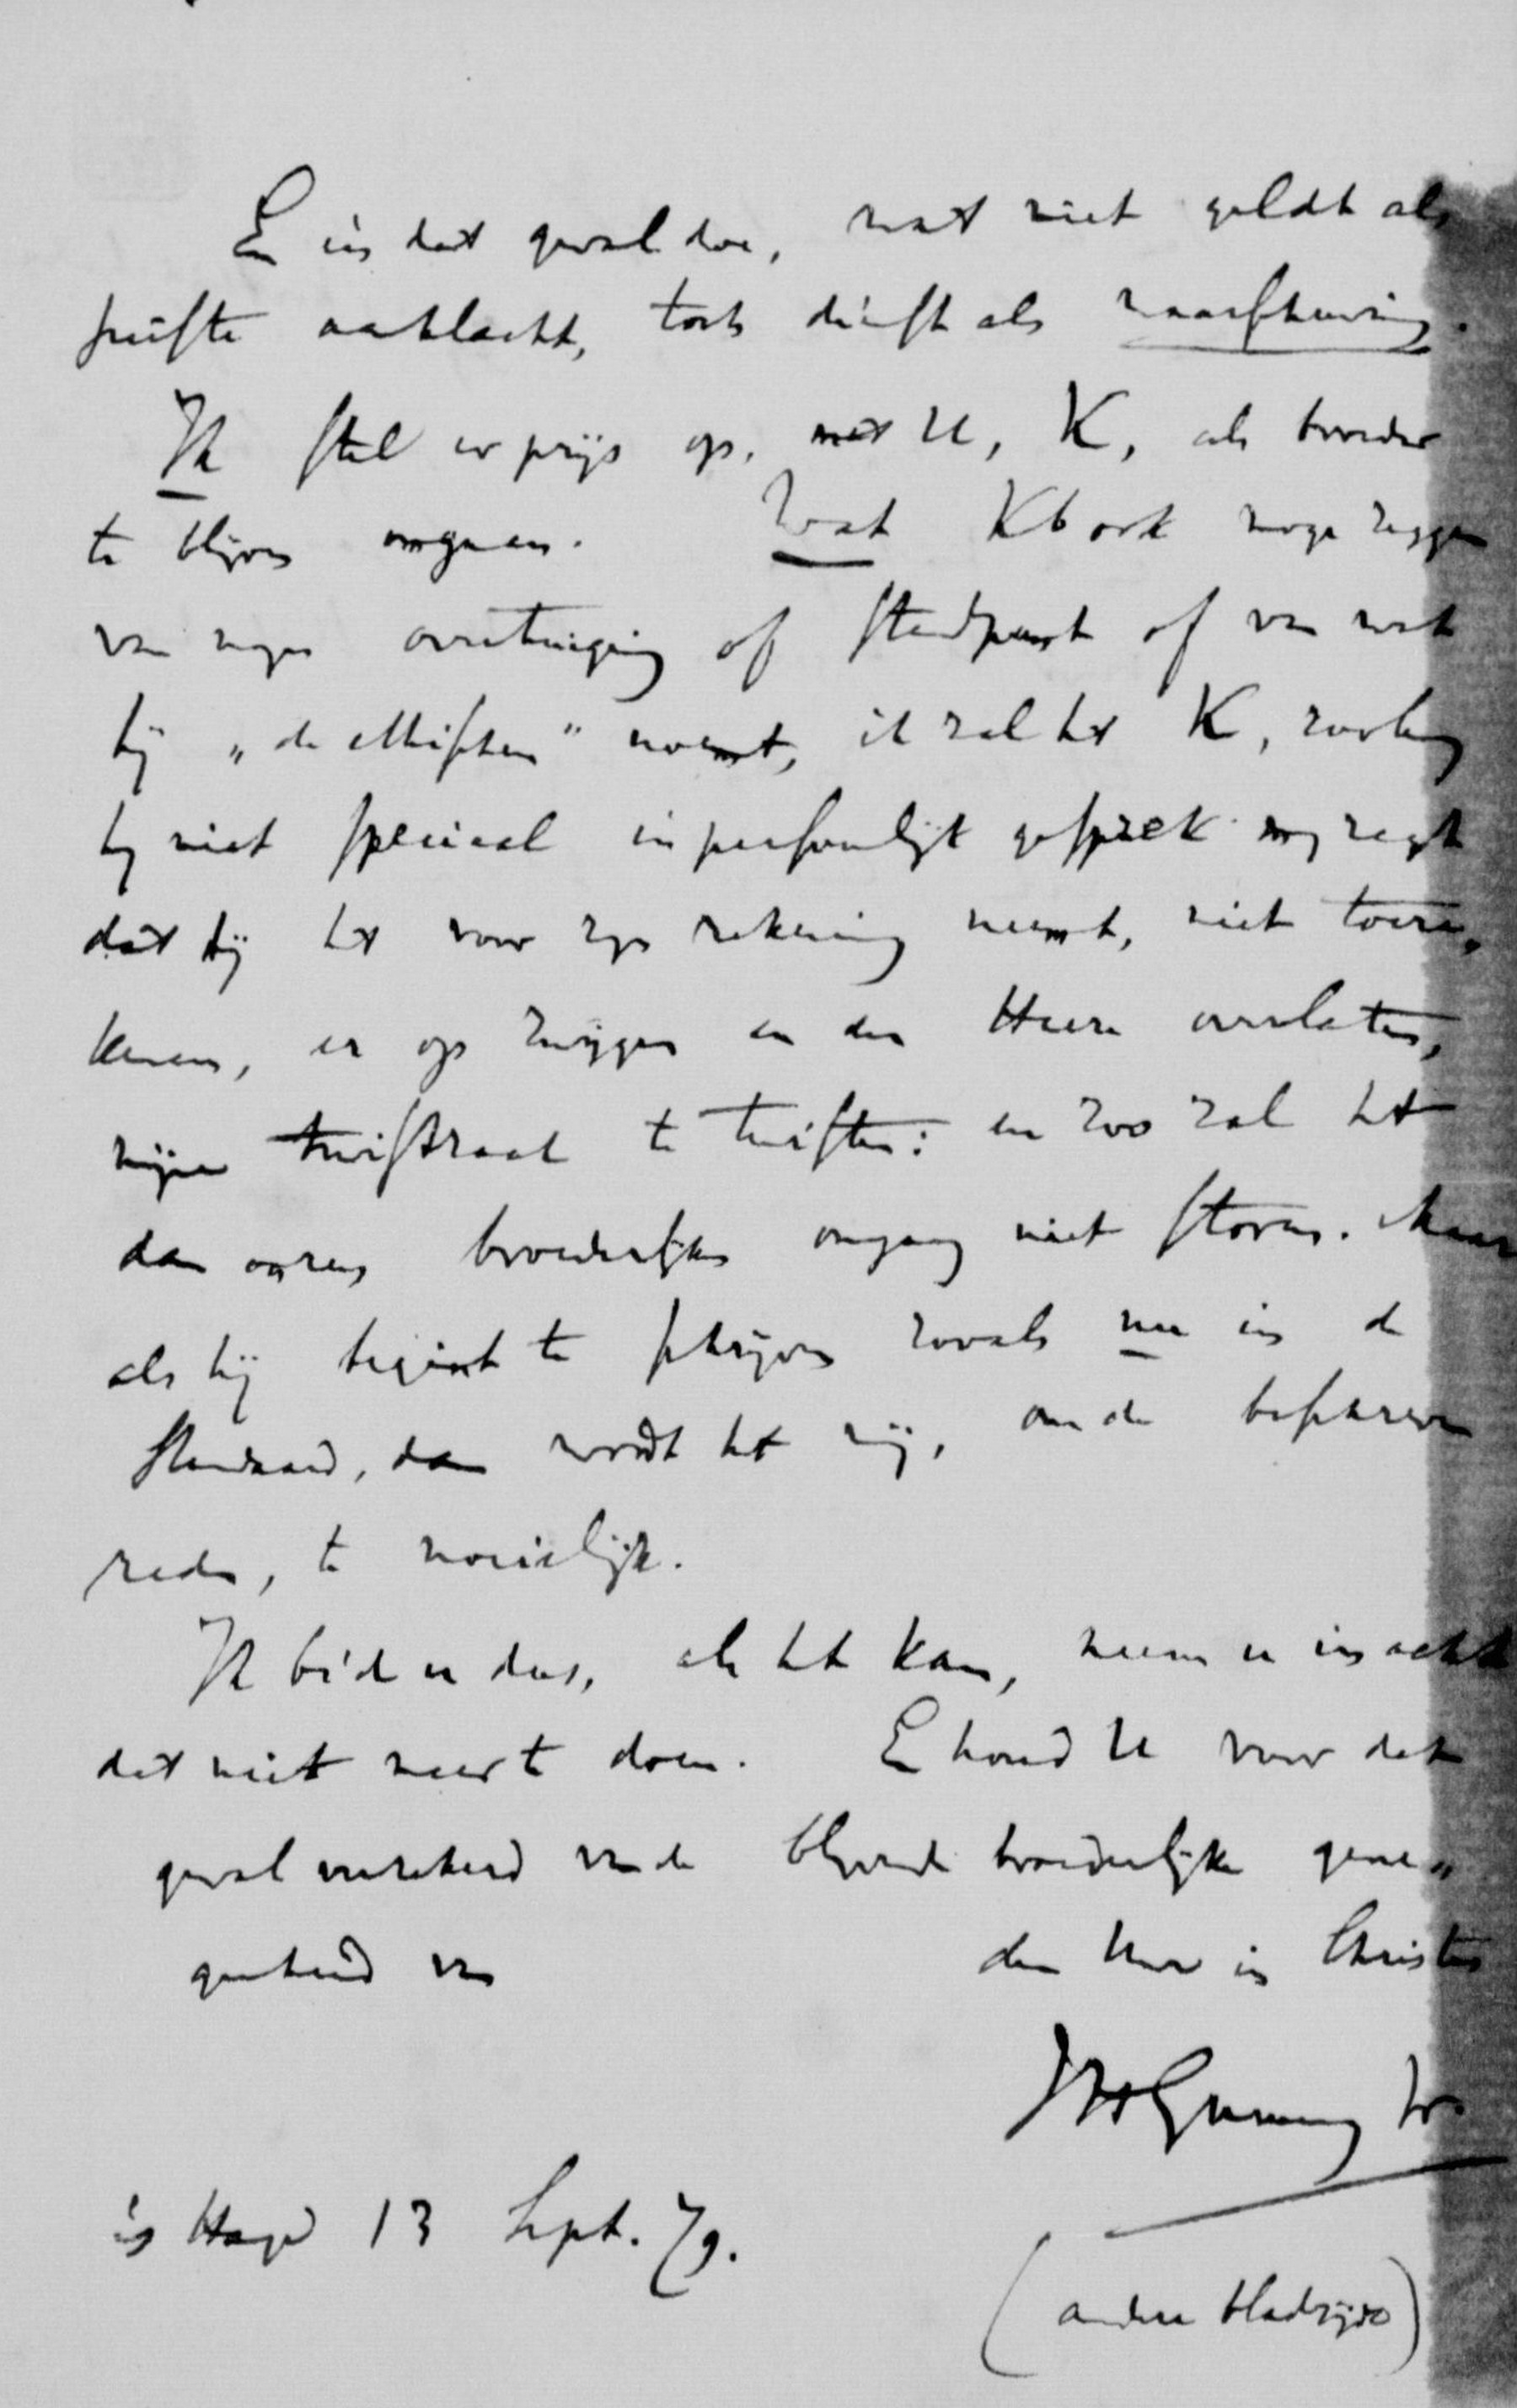 En in dat geval doe, wat niet geldt als
juiste aanklacht, toch dienst als waarschuwing.
Ik stel er prijs op, met U, K, als broeder
te blijven omgaan. Wat K ook moge zeggen
van mijn overtuiging of standpunt of van wat
hij „de ethischen" noemt, ik zal het K, zoolang
hij niet speciaal in persoonlijk gesprek mij zegt
dat hij het voor zijn rekening neemt, niet toere„
kenen, er op zwijgen en den Heere overlaten,
mijne twistzaak te twisten: en zoo zal het
dan onzen broederlijken omgang niet storen. Maar
als hij begint te schrijven zooals nu in de
Standaard, dan wordt het mij, om de beschreven
reden, te moeielijk.
Ik bid u dus, als het kan, neem u in acht
dat niet meer te doen. En houd U voor dat
geval verzekerd van de blijvende broederlijke gene„
genheid van den Uwe in Christus
JHGunning Jr.
's Hage 13 Sept. 79.
(andere bladzijde)